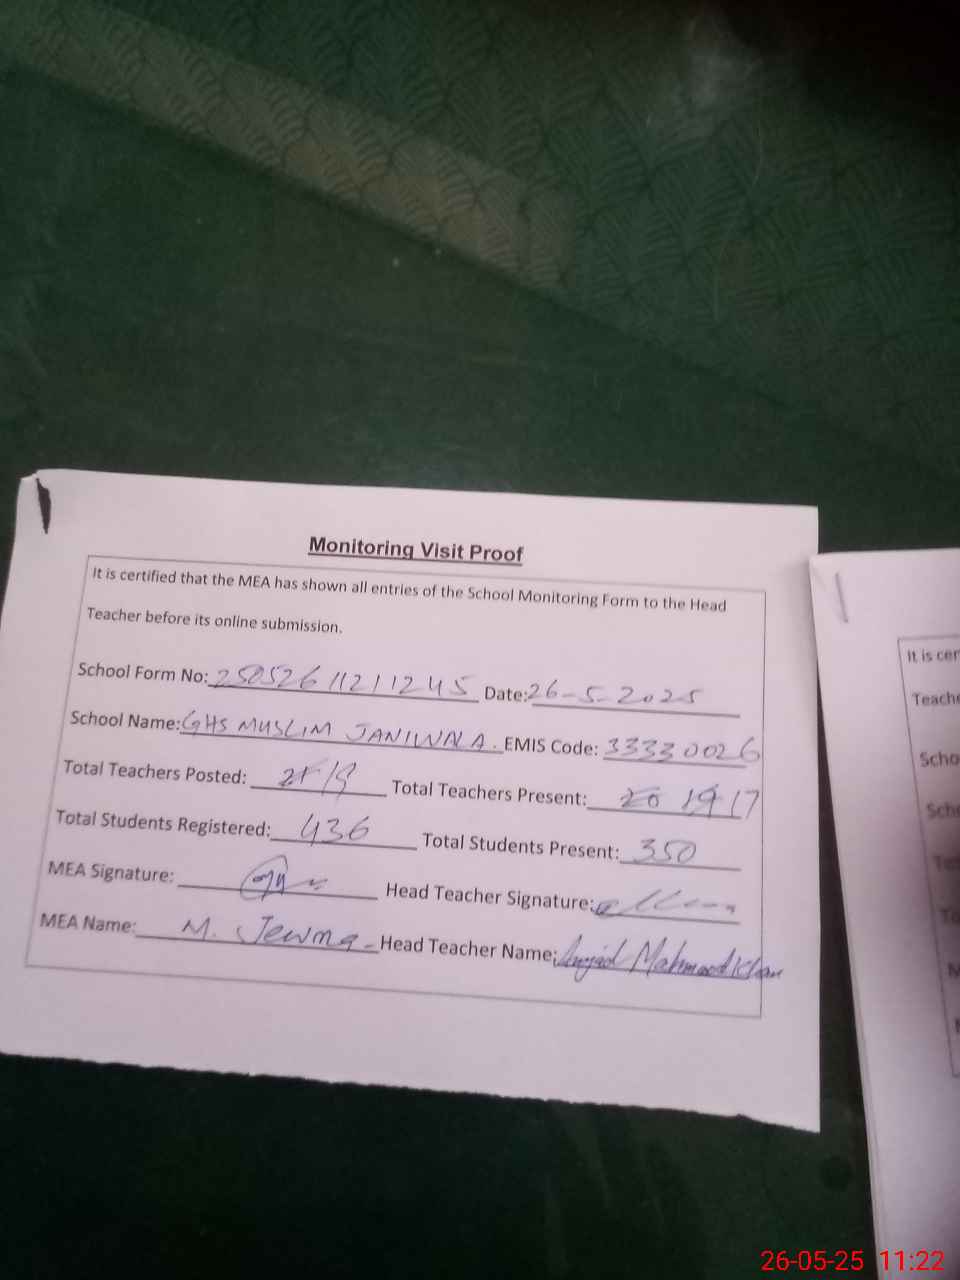 Monitoring Visit Proof
It is certified that the MEA has shown all entries of the School Monitoring Form to the Head
Teacher before its online submission.
School Form No: 25052611211245 Date: 26-5-2025
School Name: GHS MUSLIM JANIWALA. EMIS Code: 33330026
Total Teachers Posted: 19 Total Teachers Present: 17
Total Students Registered: 436 Total Students Present: 350
MEA Signature: Head Teacher Signature:
MEA Name: M. Head Teacher Name: Amjad Mahmood Khan
It is cer
Teache
Scho
Sch
26-05-25 11:22